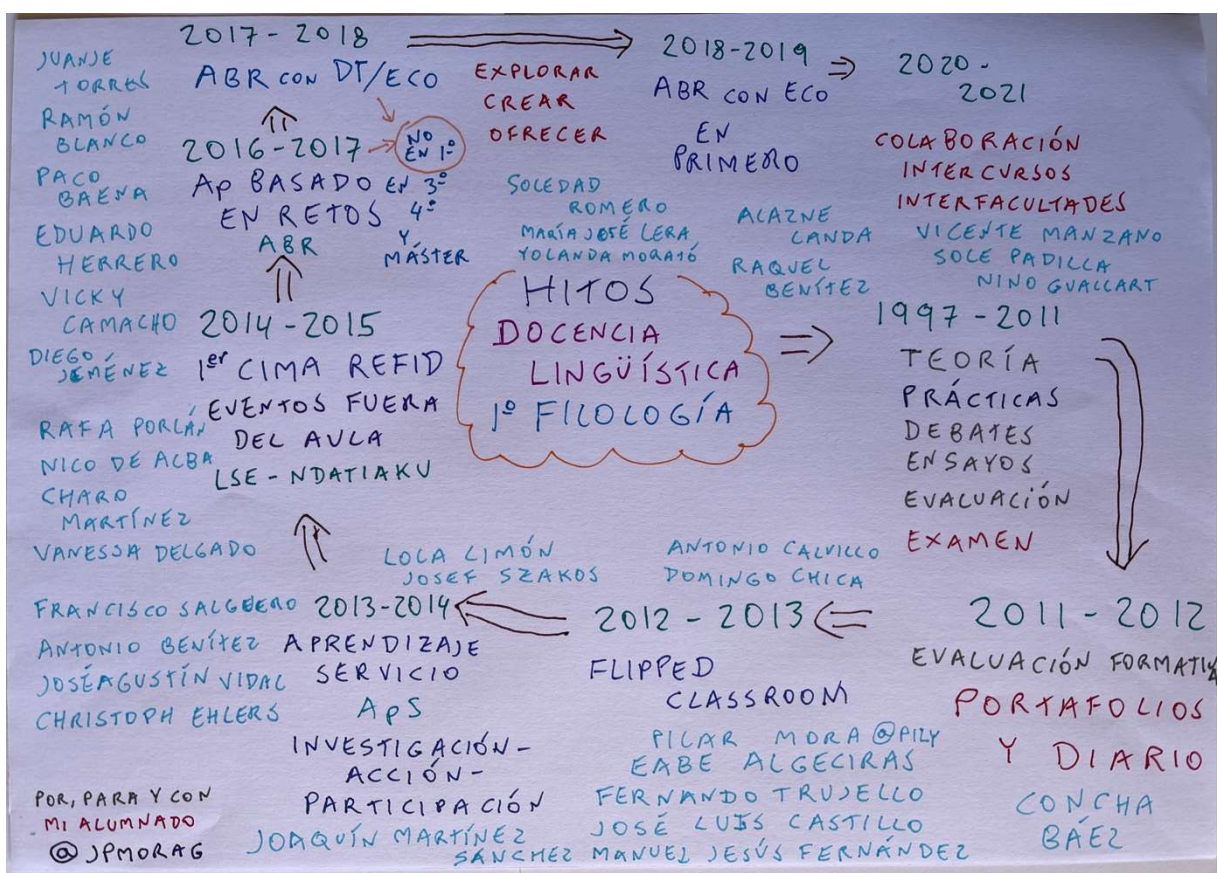 HITOS
DOCENCIA
LINGÜÍSTICA
1º FILOLOGÍA
1997-2011
TEORÍA
PRÁCTICAS
DEBATES
ENSAYOS
EVALUACIÓN
EXAMEN
2011-2012
EVALUACIÓN FORMATIVA
PORTAFOLIOS
Y DIARIO
CONCHA
BÁEZ
2012-2013
FLIPPED
CLASSROOM
ANTONIO CALVILLO
DOMINGO CHICA
PILAR MORA @PILY
EABE ALGECIRAS
FERNANDO TRUJELLO
JOSÉ LUIS CASTILLO
MANUEL JESÚS FERNÁNDEZ
2013-2014
APRENDIZAJE
SERVICIO
APS
INVESTIGACIÓN-
ACCIÓN-
PARTICIPACIÓN
JOAQUÍN MARTÍNEZ
SÁNCHEZ
LOLA LIMÓN
JOSEF SZAKOS
FRANCISCO SALGUERO
ANTONIO BENÍTEZ
JOSÉ AGUSTÍN VIDAL
CHRISTOPH EHLERS
2014-2015
1er CIMA REFID
EVENTOS FUERA
DEL AULA
LSE-NDATIAKU
RAFA PORLÁN
NICO DE ALBA
CHARO
MARTÍNEZ
VANESSA DELGADO
2016-2017
Ap BASADO EN 3º
EN RETOS 4º
ABR
Y
MÁSTER
NO
EN 1º
2017-2018
ABR CON DT/ECO
JUANJE
TORRES
RAMÓN
BLANCO
PACO
BAENA
EDUARDO
HERRERO
VICKY
CAMACHO
DIEGO
JIMÉNEZ
EXPLORAR
CREAR
OFRECER
SOLEDAD
ROMERO
MARÍA JOSÉ LERA
YOLANDA MORATÓ
2018-2019
ABR CON ECO
EN
PRIMERO
ALAZNE
LANDA
RAQUEL
BENÍTEZ
2020-
2021
COLABORACIÓN
INTERCURSOS
INTERFACULTADES
VICENTE MANZANO
SOLE PADILLA
NINO GUALLART
POR, PARA Y CON
MI ALUMNADO
@JPMORAG